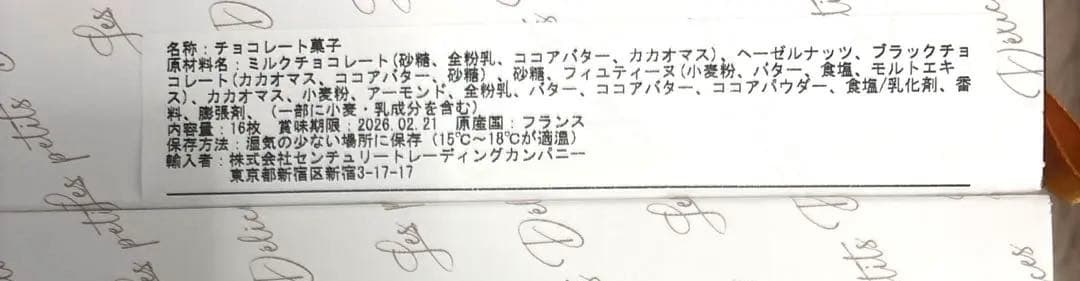 名称：チョコレート菓子
原材料名：ミルクチョコレート(砂糖、全粉乳、ココアバター、カカオマス)、ヘーゼルナッツ、ブラックチョ
コレート(カカオマス、ココアバター、砂糖)、砂糖、フィユティーヌ(小麦粉、バター、食塩、モルトエキ
ス)、カカオマス、小麦粉、アーモンド、全粉乳、バター、ココアバター、ココアパウダー、食塩/乳化剤、香
料、膨張剤、(一部に小麦・乳成分を含む)
内容量：16枚 賞味期限：2026.02.21 原産国：フランス
保存方法：湿気の少ない場所に保存(15℃～18℃が適温)
輸入者：株式会社センチュリートレーディングカンパニー
東京都新宿区新宿3-17-17
Les
Les petits
Delic
Les
Del
Les
D
tits
ces